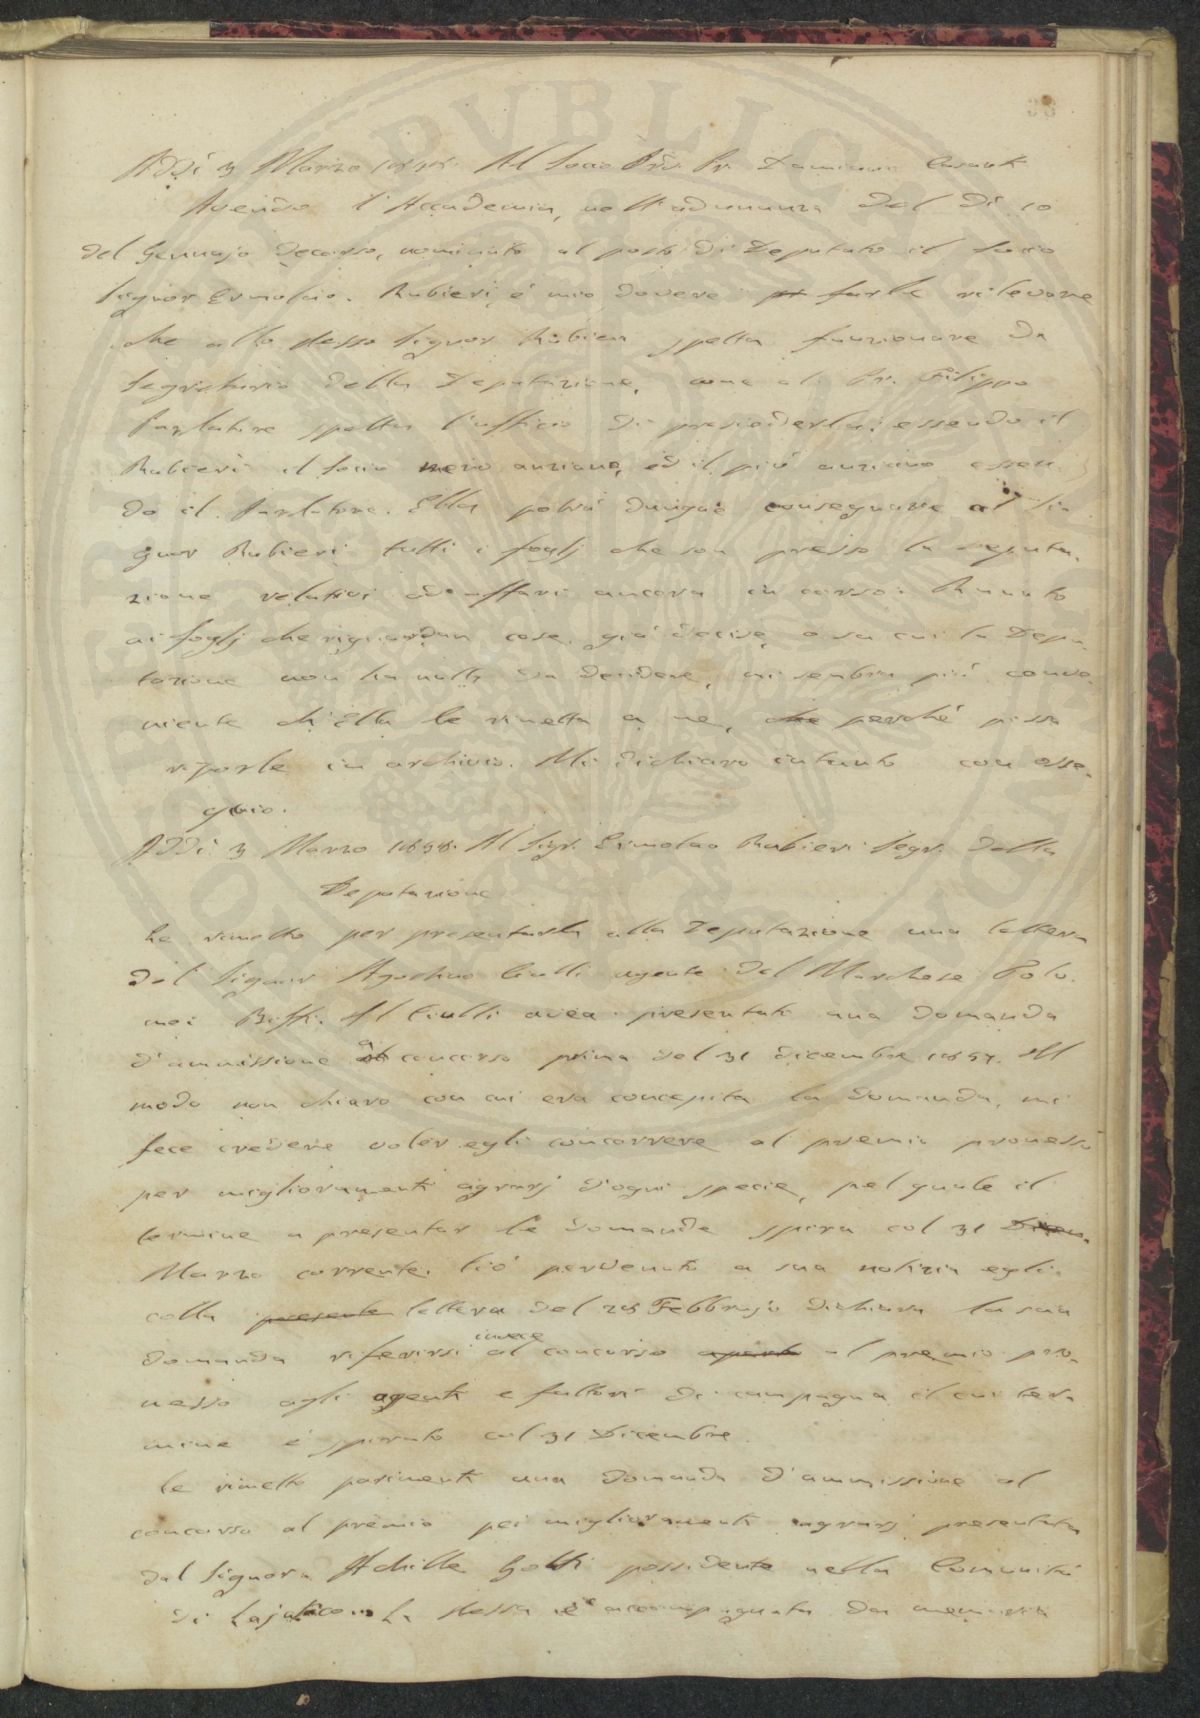 Addì 3 Marzo 1858. Al Socio Prof. Pr. Damiano Casanti
Avendo l'Accademia, nell'adunanza del dì 10
del Gennajo decorso, nominato al posto di Deputato il Socio
Signor Ermolao Rubieri, è mio dovere farle rilevare
che allo stesso Signor Rubieri spetta funzionare da
Segretario della Deputazione, come al Pr. Filippo
Parlatore spetta l'ufficio di presiederla; essendo il
Rubieri il Socio meno anziano, ed il più anziano essen
do il Parlatore. Ella potrà dunque consegnare al Si
gnor Rubieri tutti i foglj che son presso la Deputa-
zione relativi ad affari ancora in corso. Quanto
ai foglj che riguardan cose già decise, o su cui la Depu
tazione non ha nulla da decidere, mi sembra più conve-
niente ch'Ella le rimetta a me, che perchè possa
riporle in archivio. Mi dichiaro intanto con osse-
quio.
Addì 3 Marzo 1858. Al Sigr. Ermolao Rubieri Segr. della
Deputazione
Le rimetto per presentarla alla Deputazione una lettera
del Signor Agostino Ciulli agente del Marchese Tolo
mei Biffi. Il Ciulli avea presentato una domanda
d'ammissione al concorso prima del 31 dicembre 1857. Il
modo non chiaro con cui era concepita la domanda, mi
fece credere voler egli concorrere al premio promesso
per miglioramenti agrarj d'ogni specie, pel quale il
termine a presentar le domande spira col 31 Dicem-
Marzo corrente. Ciò pervenuto a sua notizia egli
colla presente lettera del 28 Febbrajo dichiara la sua
domanda riferirsi invece al concorso aperto al premio pro-
messo agli agenti e fattori di campagna il cui ter
mine è spirato col 31 Dicembre.
Le rimetto parimenti una domanda d'ammissione al
concorso al premio pei miglioramenti agrarj presentata
dal Signor Achille Gotti possidente nella Comunità
di Lajatico. La stessa è accompagnata da memoria